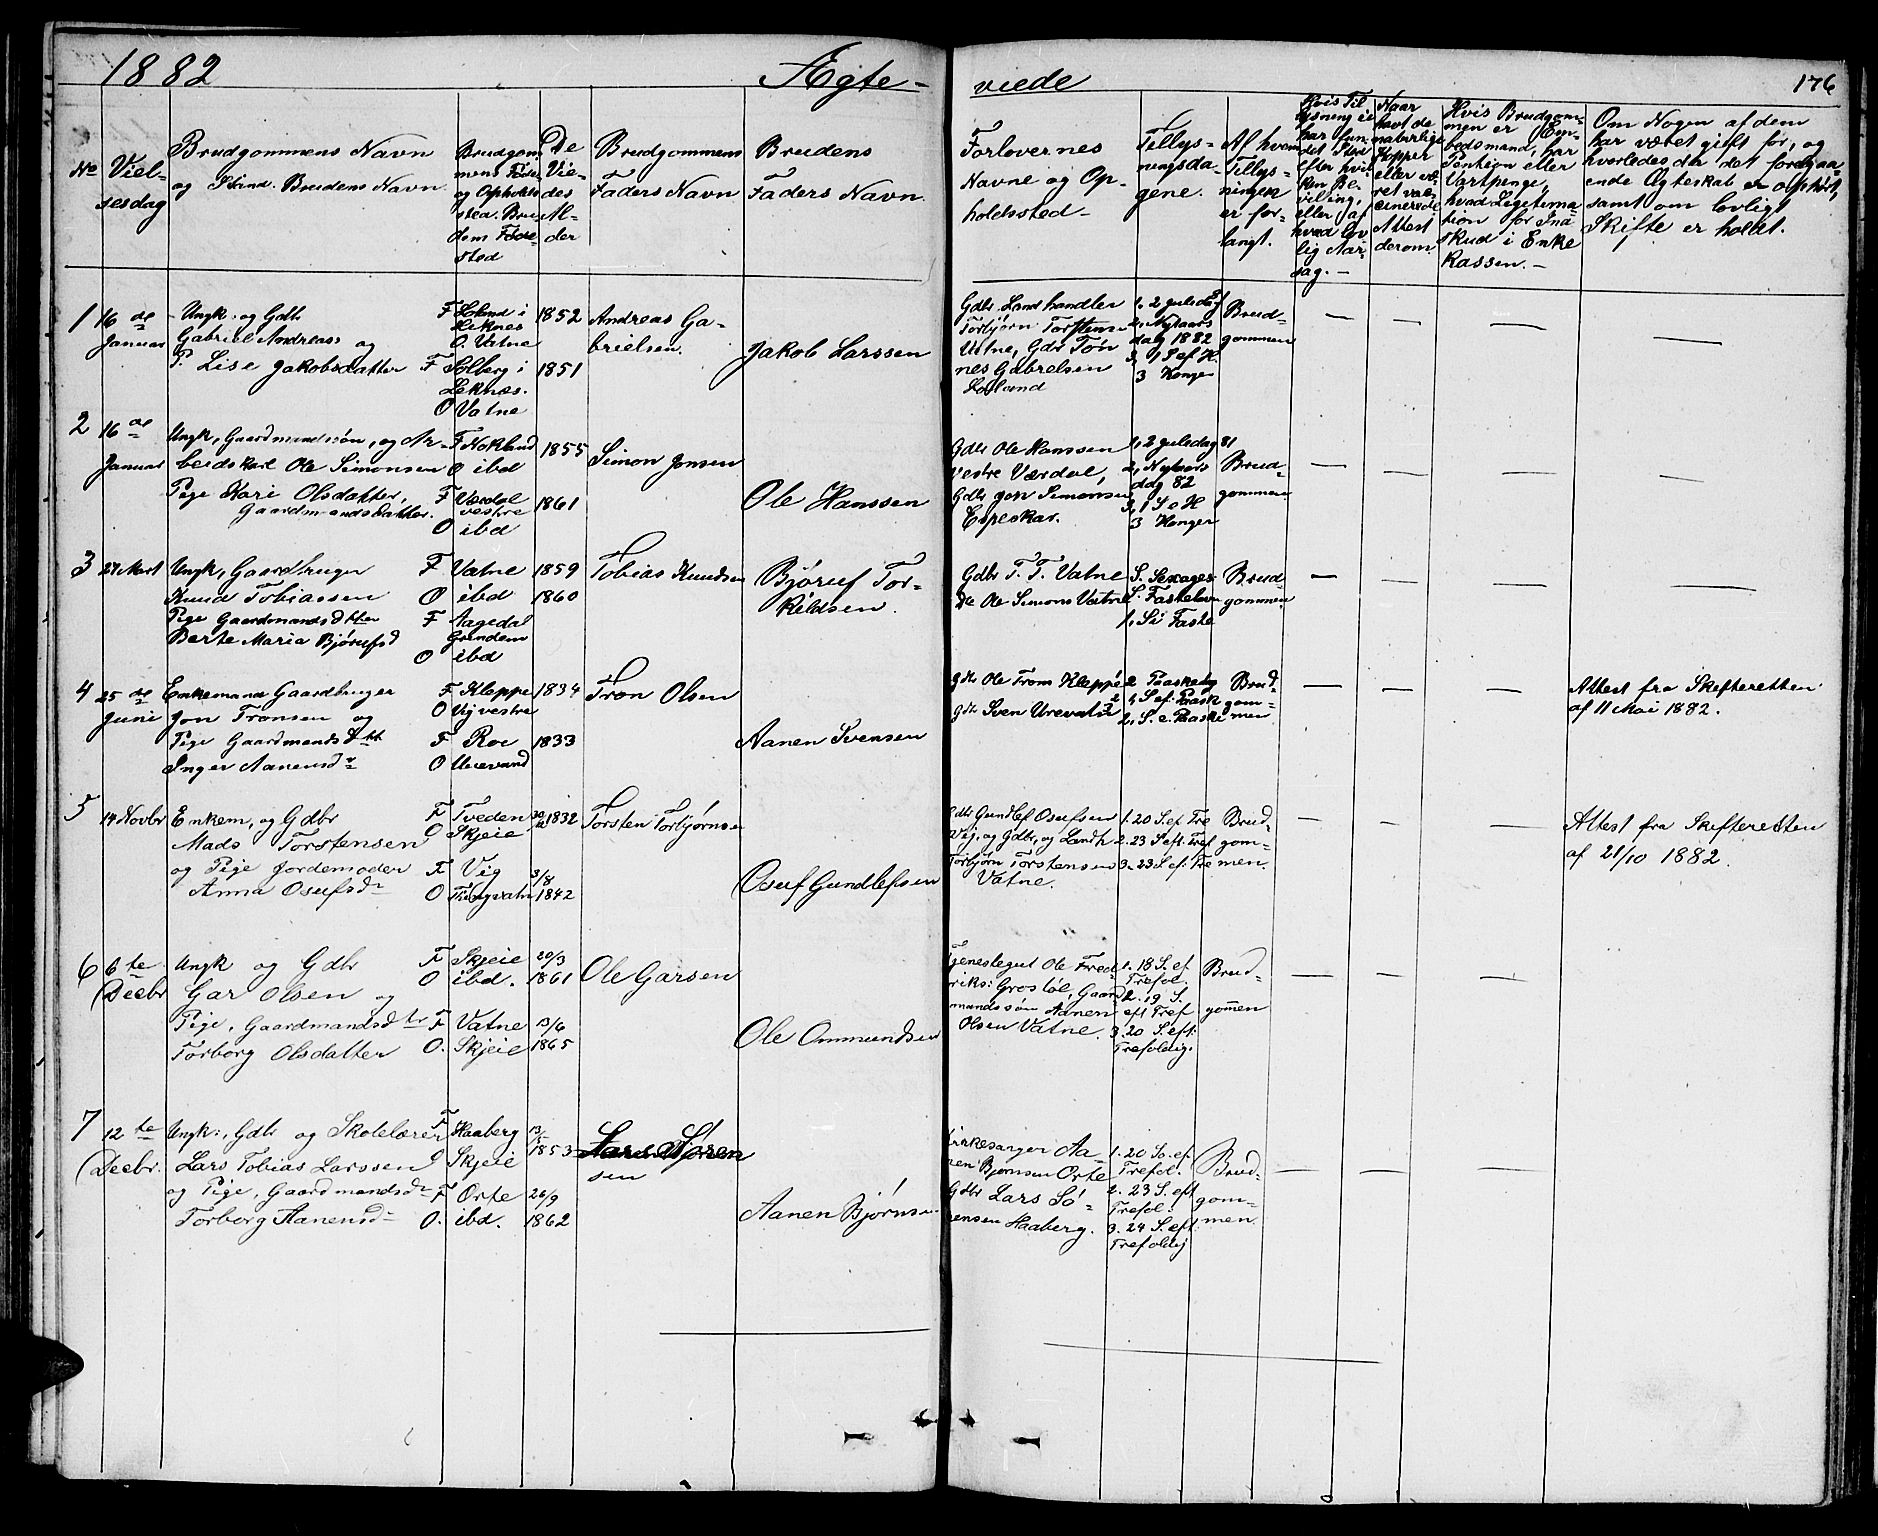 1882
Ægte-
viede
176
No
Viel-
sesdag
Brudgommens Navn
og Stind. Brudens Navn.
Brudgom
mens Føde
og Opholds
sted. Bru
dens Føde
sted
De
Vie-
des
Al-
der
Brudgommens
Faders Navn
Brudens
Faders Navn.
Forlovernes
Navne og Op-
holdssted-
Tillys-
ningsda-
gene.
Af hvem
Tillys-
ningen
er for-
langt.
Hvis Til
lysning ei
har fun
det Sted
efter hvil
ken Be-
viling,
eller af
hvad lov
lig Aar-
sag.-
Naar
havt de
naturlige
Kopper
eller væ-
ret vac-
cinerede
Attest
derom.
Hvis Brudgom-
men er Em-
bedsmand, har
Pention eller
Vartpenge,
hvad Legitima-
tion for Ind
skud i Enke
Kassen.-
Om Nogen af dem
har været gift før, og
hvorledes da det foregaa-
ende Ægteskab er ophørt,
samt om lovligt
Skifte er holdt.
1
16 de
Januar
Ungk. og Gdbr
Gabriel Andreas: og
P. Lise Jakobsdatter
F
O. Vatne
F Solberg i
Leknes.
O Vatne
1852
1851
Andreas Ga-
brielsen.
Jakob Larssen
Gdbr. Landhandler
Torbjørn Torstens
Vatne, Gdbr Tøn
nes Gabrelsen
1, 2 Julsdag
2, Nytaars
dag 1882
3, 1 S ef H.
3 Konger
Brud-
gommen
2
16 de
Januar
Ungk, Gaardmandssøn, og Ar-
beidskarl Ole Simonsen
Pige Kari Olsdatter,
Gaardmandsdatter.
F Nokland
O ibd
F Værdal
vestre
O ibd
1855
1861
Simon Jonsen
Ole Hanssen
Gdbr Ole Hanssen
vestre Værdal,
Gdbr Jon Simonsen
Espeskar.
1, 2 Julsdag 81
2, Nytaars
dag 82
3, 1 S o H
3 Konger
Brud-
gommen
3
27 Mart
Ungk, Gaardbruger
Knud Tobiassen
Pige Gaardmandsdtter
Berte Maria Bjørufsd
F Vatne
O ibd
F Aagedal
O ibd
1859
1860
Tobias Knudsen
Bjøruf Tor-
kildsen.
Gdbr T. T. Vatne
Do Ole Simons Vatne
S. Sexages.
S. Fastelavn
1, S i Faste
Brud-
gommen
4
25 de
Juni
Enkemand Gaardbruger
Jon Tronsen og
Pige Gaardmandsdtt
Inger Aanensdr
F Kleppe
O Vij vestre
F Roe
O Urevand
1834
1833
Tron Olsen
Aanen Svensen
Gdb Ole Trons Kleppe
Gdb Sven Urevatn
2 Paaskedg
1, S ef. Paask
2, S. e. Paaske
Brud-
gom-
men
Attest fra Skifteretten
af 11 Mai 1882.
5
14 Novbr
Enkem, og Gdbr
Mads Torstensen
og Pige Jordemoder
Anna Osufsdr
F Tveden
O Skjeie
F Vig
O
1832
3/8
1842
Torsten Torbjørnsen
Osuf Gundlefsen
Gdbr Gundlef Osufsen
Vij, og Gdbr, og Landh
Torbjørn Torstensen
Vatne.
1. 20 S. ef Tre
2. 23 S eft. Tref
3. 23 S. ef. Tre
Brud-
gom-
men.
Attest fra Skifteretten
af 21/10 1882.
6
6 te
Decbr
Ungk og Gdbr
Gar Olsen og
Pige, Gaardmandsdtr
Torborg Olsdatter
F Skjeie
O ibd.
F Vatne
O. Skjeie
20/3
1861
13/6
1865
Ole Garsen
Ole Ommundsen
Tjenestegut Ole Fred-
riks: Grostøl, Gaard
mandssøn Aanen
Olsen Vatne.
1. 18 S. ef.
Trefol.
2. 19 S.
eft Tref
3. 20 S. eft:
Trefoldig.
Brud-
gommen
7
12 te
Decbr.
Ungk:, Gdbr og Skolelærer
Lars Tobias Larssen
og Pige, Gaardmandsdr
Torborg Aanensd
F Haaberg
O Skjeie
F Orte
O. ibd.
13/5
1853
26/9
1862
Lars Sjøren
sen
Aanen Bjørnsen
Kirkesanger Aa-
nen Bjørnsen Orte
Gdbr Lars Sö-
rensen Haaberg.
1. 20 So. ef.
Trefol.
2. 23 S. eft
Trefol.
3. 24 S. eft.
Trefoldij
Brud-
gom-
men.